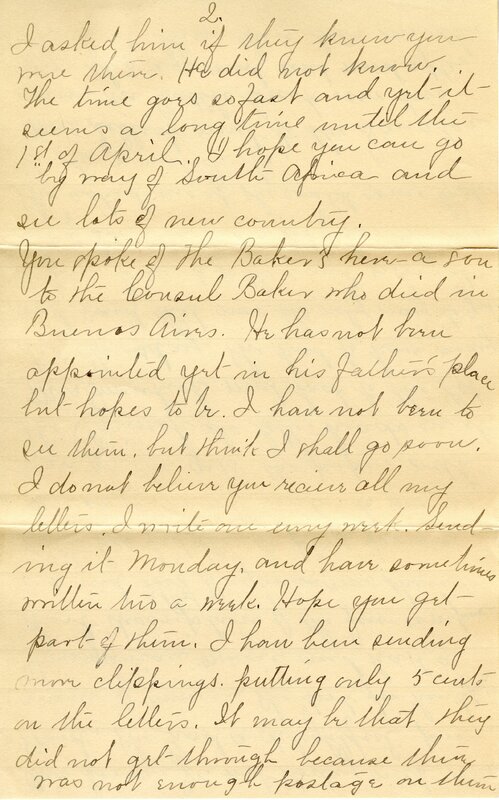 2.
I asked him if they knew you
were there. He did not know.
The time goes so fast and yet it
seems a long time until the
1st of April. I hope you can go
by way of South Africa and
see lots of new country.
You spoke of the Baker's here - a son
to the Consul Baker who died in
Buenos Aires. He has not been
appointed yet in his father's place
but hopes to be. I have not been to
see them, but think I shall go soon.
I do not believe you recieve all my
letters. I write one every week. Send-
ing it Monday, and have sometimes
written two a week. Hope you get
part of them. I have been sending
more clippings. putting only 5 cents
on the letters. It may be that they
did not get through because there
was not enough postage on them